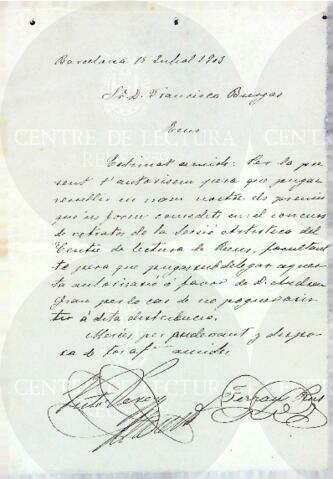 Barcelona 15 Juliol 1903
Sr. D. Francisco Buergas
Reus
Estimat amich: Per la pre
sent t'autorisem para que pugas
recullir en nom nostre els premis
que 'ns foren concedits en el concurs
de retratos de la Secció Artística del
Centre de lectura de Reus, facultant
te para que pugas subdelegar aques
ta autorisació á favor de D.
Joan per lo cas de no poguer assis
tir á dita distribució.
Mercés per endavant y disposa
de tos af. amichs
CENTRE DE LECTURA
REUS